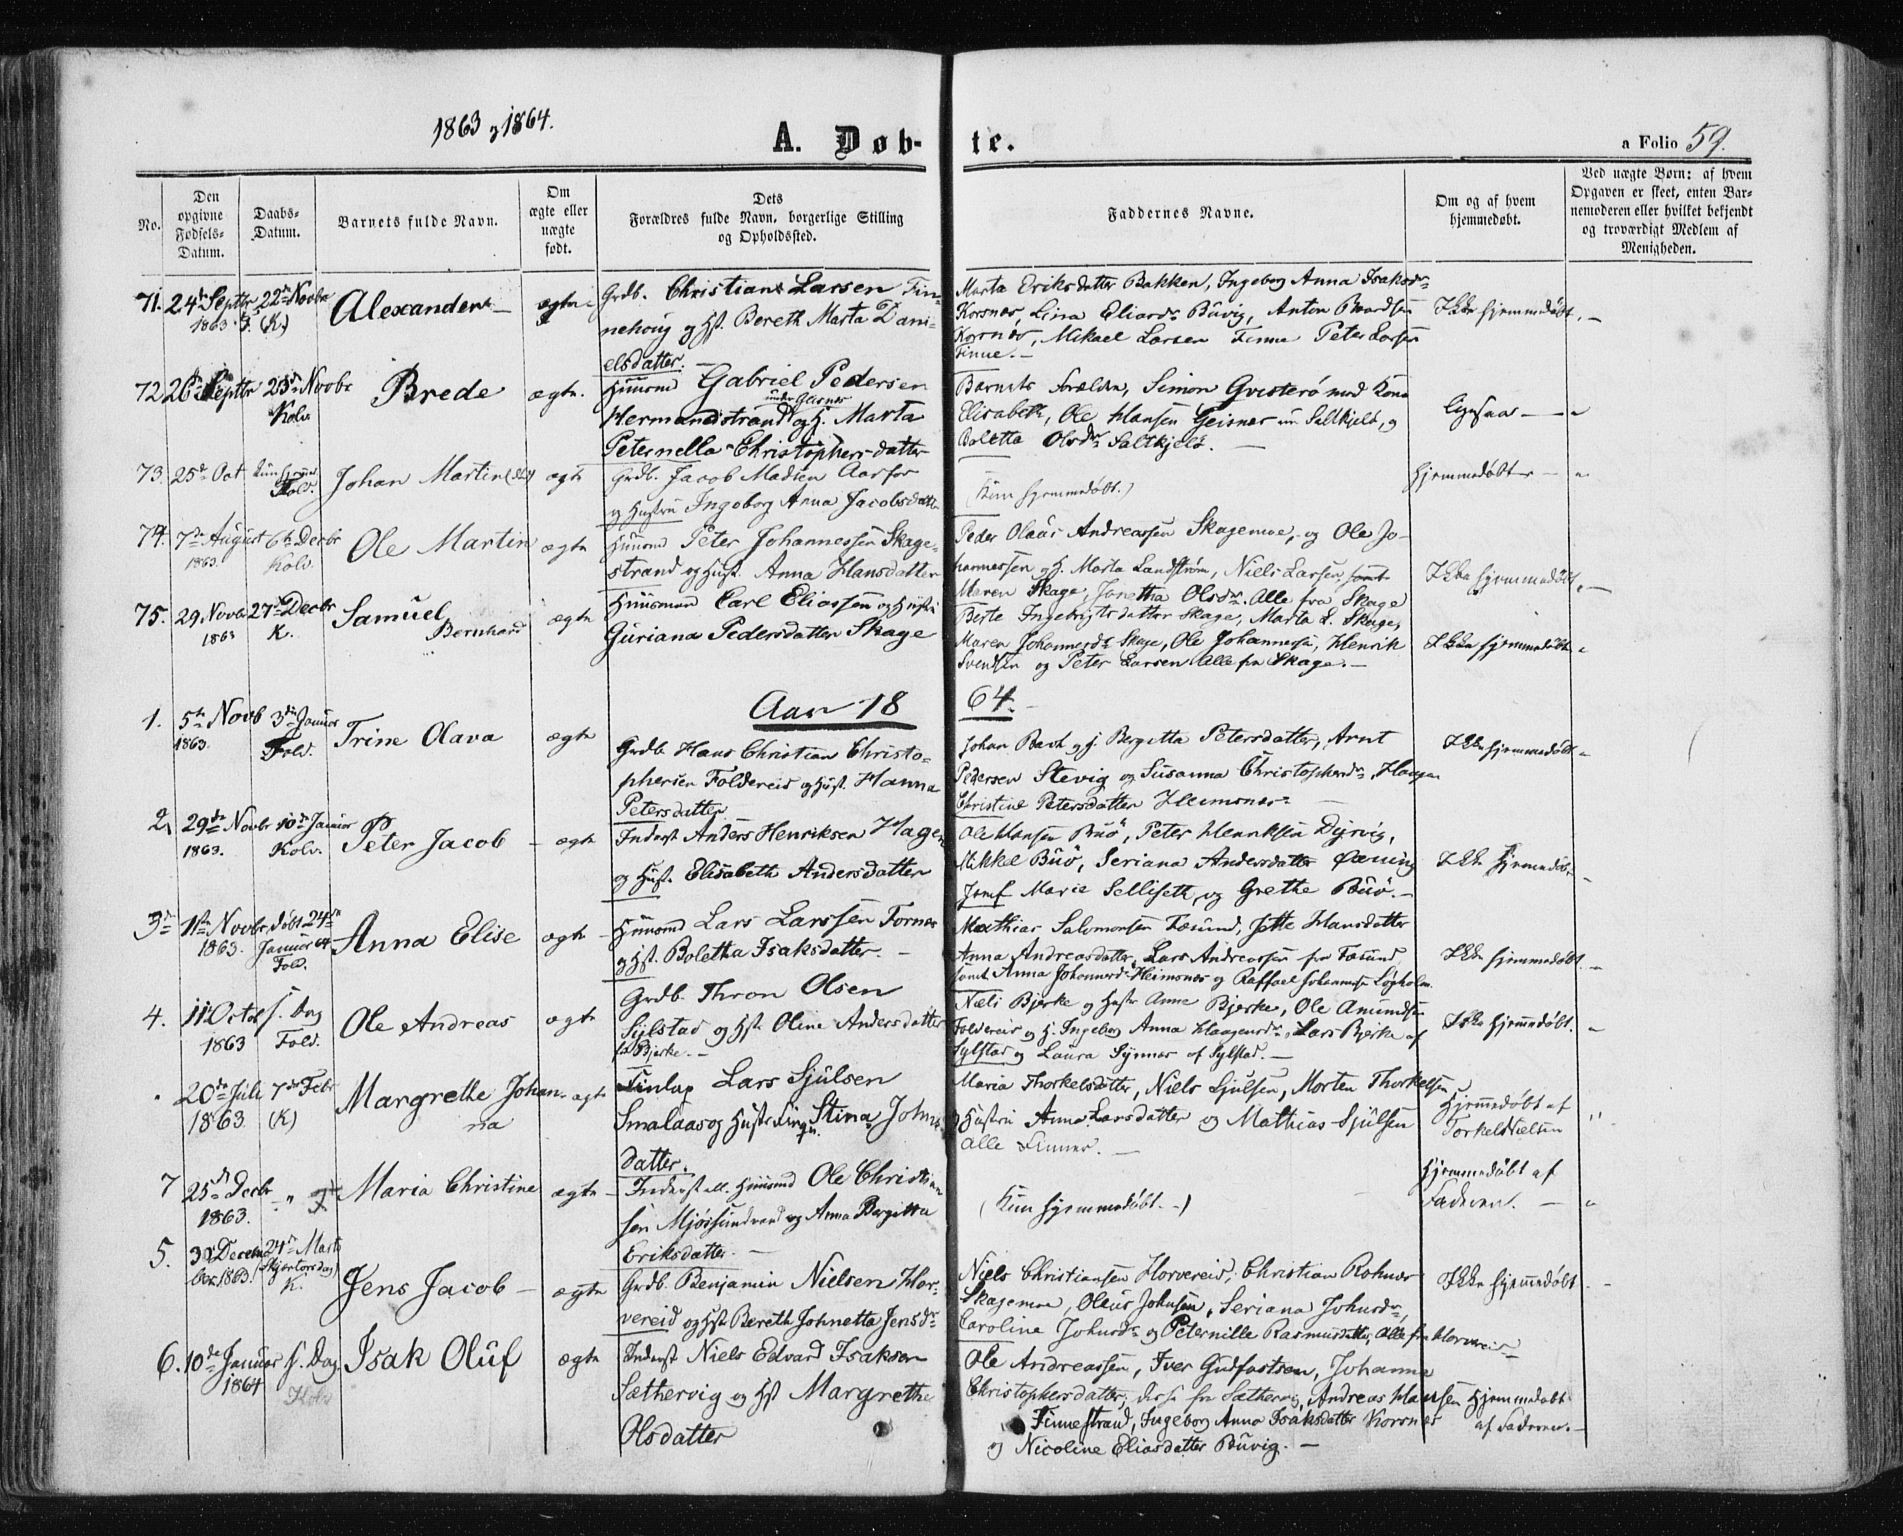 1863 og 1864.
A. Døb-
te.
a Folio 59.
No.
Den
opgivne
Fødsels-
Datum.
Daabs-
Datum.
Barnets fulde Navn.
Om
ægte eller
uægte
født.
Dets
Forældres fulde Navn, borgerlige Stilling
og Opholdssted.
Faddernes Navne.
Om og af hvem
hjemmedøbt.
Ved uægte Børn: af hvem
Opgaven er skeet, enten Bar-
nemoderen eller hvilket bekjendt
og troværdigt Medlem af
Menigheden.
71. 24de Septbr 22de Novbr Alexander ægte Grdb. Christian Larsen Fin-
1863 (K.)
nehoug og Hst. Bereth Marta Dani-
elsdatter.
Marta Eriksdatter Bakken, Ingeborg Anna Isaksdr
Korsnes, Lina Eliasdr Buvig, Anton
Korsnes, Mikael Larsen Finne Peter Larsen
Finne.
Ikke hjemmedøbt.
72. 26de Septbr Novbr Brede ægte. Huusmd Gabriel Pedersen
Kolv. under Geisnes
Hermandstrand og H. Marta
Peternella Christophersdatter
Barnets Forældre, Simon med Kone
Elisabeth, Ole Hansen Geisnes Saltkjelø, og
Boletta Olsdr Saltkjelø.
ligesaa
73. 25de Oct Fold. Johan Martin ægte Grdb. Jacob Madsen
og Hustru Ingeborg Anna Jacobsdatter
(Kun hjemmedøbt.)
hjemmedøbt
74. 7de August 6te Decbr Ole Martin ægte Huusmd Peter Johannessen Skage-
1863. Kolv.
strand og Hust. Anna Hansdatter
Peder Olaus Andreassen Skagemoe, og Ole Jo-
hannessen og H. Marta Landstrøm, Niels Larsen, samt
Maren Skage, Jonetha Olsdr. Alle fra Skage
Ikke hjemmedøbt.
75. 29 Novbr 27de Decbr Samuel ægte Huusmand Carl Eliassen og Hustru
1863 K. Bernhard
Guriana Pedersdatter Skage
Berte Ingebrigtsdatter Skage, Marta L. Skage,
Maren Johannesdr Skage, Ole Johannessen, Henrik
Svendsen og Peter Larsen Alle fra Skage.
Ikke hjemmedøbt
Aar 18
64.
1. 5te Novb 3die Januar Trine Olava ægte Grdb. Hans Christian Christo-
1863. Fold.
phersen Foldereid og Hust. Hanna
Petersdatter
Johan Bach og Bergitta Petersdatter, Arnt
Pedersen Stevig og Susanna Christophersdr,
Christine Petersdatter Heimsnes
Ikke hjemmedøbt
2. 29de Novbr 10de Januar Peter Jacob ægte Inderst Anders Henriksen Hagen
1863. Kolv.
og Hust. Elisabeth Andersdatter
Ole Hansen Buø, Peter Henriksen Dyrvig,
Mikkel Buø, Seriana Andersdatter
Jomf Marie Selliseth og Grethe Buø.
Ikke hjemmedøbt
3. 11te Novbr døbt 24de Anna Elise ægte Huusmd Lars Larssen Fornes
1863. Januar 64
Fold.
og Hst. Boletha Isaksdatter.
Mathias Salomonsen Fæsund, Jette Hansdatter
Anna Andreasdatter, Lars Andreassen fra Fæsund,
samt Anna Johannesdr Heimsnes og Raffael Johannessen Løgholm
Ikke hjemmedøbt.
4. 11 Octob s. Dag Ole Andreas ægte Grdb. Thron Olsen
1863 Fold.
Sylstad og Hst. Oline Andersdatter
fra Bjerke.
Næli Bjerke og Hustr Anne Bjerke, Ole Amundsen
Foldereid og H. Ingeborg Anna Haagensdr, Lars Bjerke af
Sylstad og Laura Synnes af Sylstad.
Ikke hjemmedøbt.
20de Juli 7de Febr Margrethe Johan- ægte Finlap Lars Sjulsen
1863 (K) na
Smalaas og Hustr Stina Johns
datter.
Maria Thorkelsdatter, Niels Sjulsen, Morten Thorkelsen
og Hustru Anna Larsdatter og Mathias Sjulsen
alle Finner.
Hjemmedøbt af
Torkel Nielsen
7 25de Decbr " Maria Christine ægte Inderst ell. Huusmd Ole Christian
1863.
sen Mjøssundvand og Anna Bergitta
Eriksdatter.
(Kun hjemmedøbt.)
Hjemmedøbt af
Faderen.
5. 30 Decem 24de Marts
ber 1863. (Skjærtorsdag)
K.
Jens Jacob ægte Grdb. Benjamin Nielsen Hor-
vereid og Hst Bereth Johnetta Jensdr
Niels Christiansen Horvereid, Christian Rohnes
Skagemoe, Olaus Johnsen, Seriana Johnsdr,
Caroline Johnsdr og Peternille Rasmusdatter, Alle fra Horvereid
Ikke hjemmedøbt
6. 10de Januar s. Dag Isak Oluf ægte Inderst Niels Edvard Isaksen
1864 Kolv
Sæthervig og Hst Margrethe
Olsdatter
Ole Andreassen, Iver Gudfastsen, Johanna
Christophersdatter, disse fra Sæthervig, Andreas Hansen
Finnestrand, Ingeborg Anna Isaksdatter Korsnes
og Nicoline Eliasdatter Buvig.
Hjemmedøbt
af Faderen.